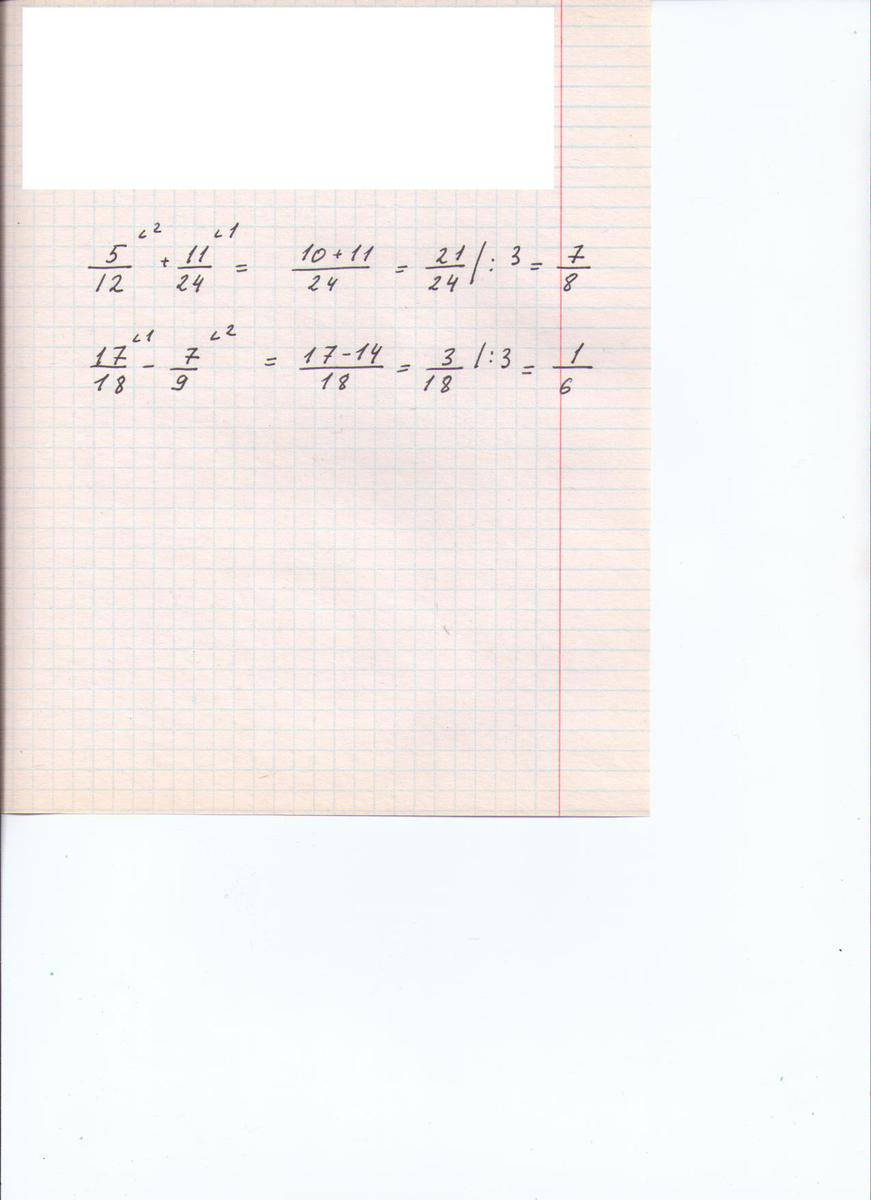 5/12 ⌞2 + 11/24 ⌞1 = 10+11/24 = 21/24 /: 3 = 7/8
17/18 ⌞1 - 7/9 ⌞2 = 17-14/18 = 3/18 /:3 = 1/6